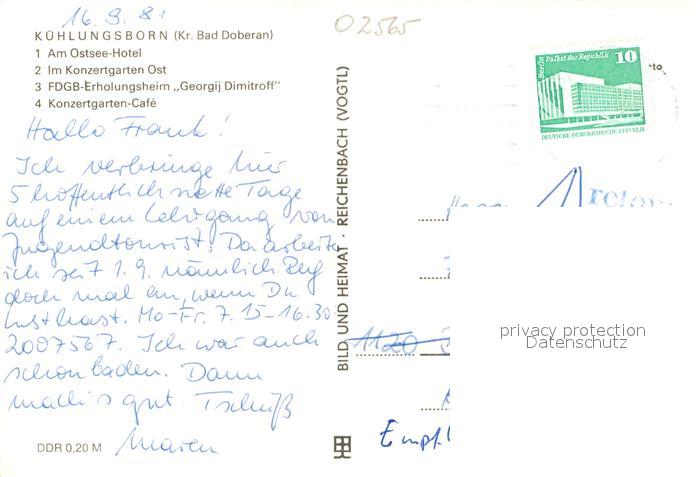 16.9.81
KÜHLUNGSBORN (Kr. Bad Doberan)
1 Am Ostsee-Hotel
2 Im Konzertgarten Ost
3 FDGB-Erholungsheim „Georgij Dimitroff"
4 Konzertgarten-Café
Hallo Frank!
Ich verbringe hier
5 hoffentlich nette Tage
auf einem Lehrgang von
Jugendtourist. Da arbeite
ich seit 1.9. nämlich. Ruf
doch mal an, wenn Du
Lust hast. Mo-Fr. 7.15-16.30
2007567. Ich war auch
schon baden. Dann
mach's gut. Tschüß
Maren
DDR 0,20 M
BILD UND HEIMAT · REICHENBACH (VOGTL)
02565
Berlin Palast der Republik 10
DEUTSCHE DEMOKRATISCHE REPUBLIK
1120
Empf.
privacy protection
Datenschutz